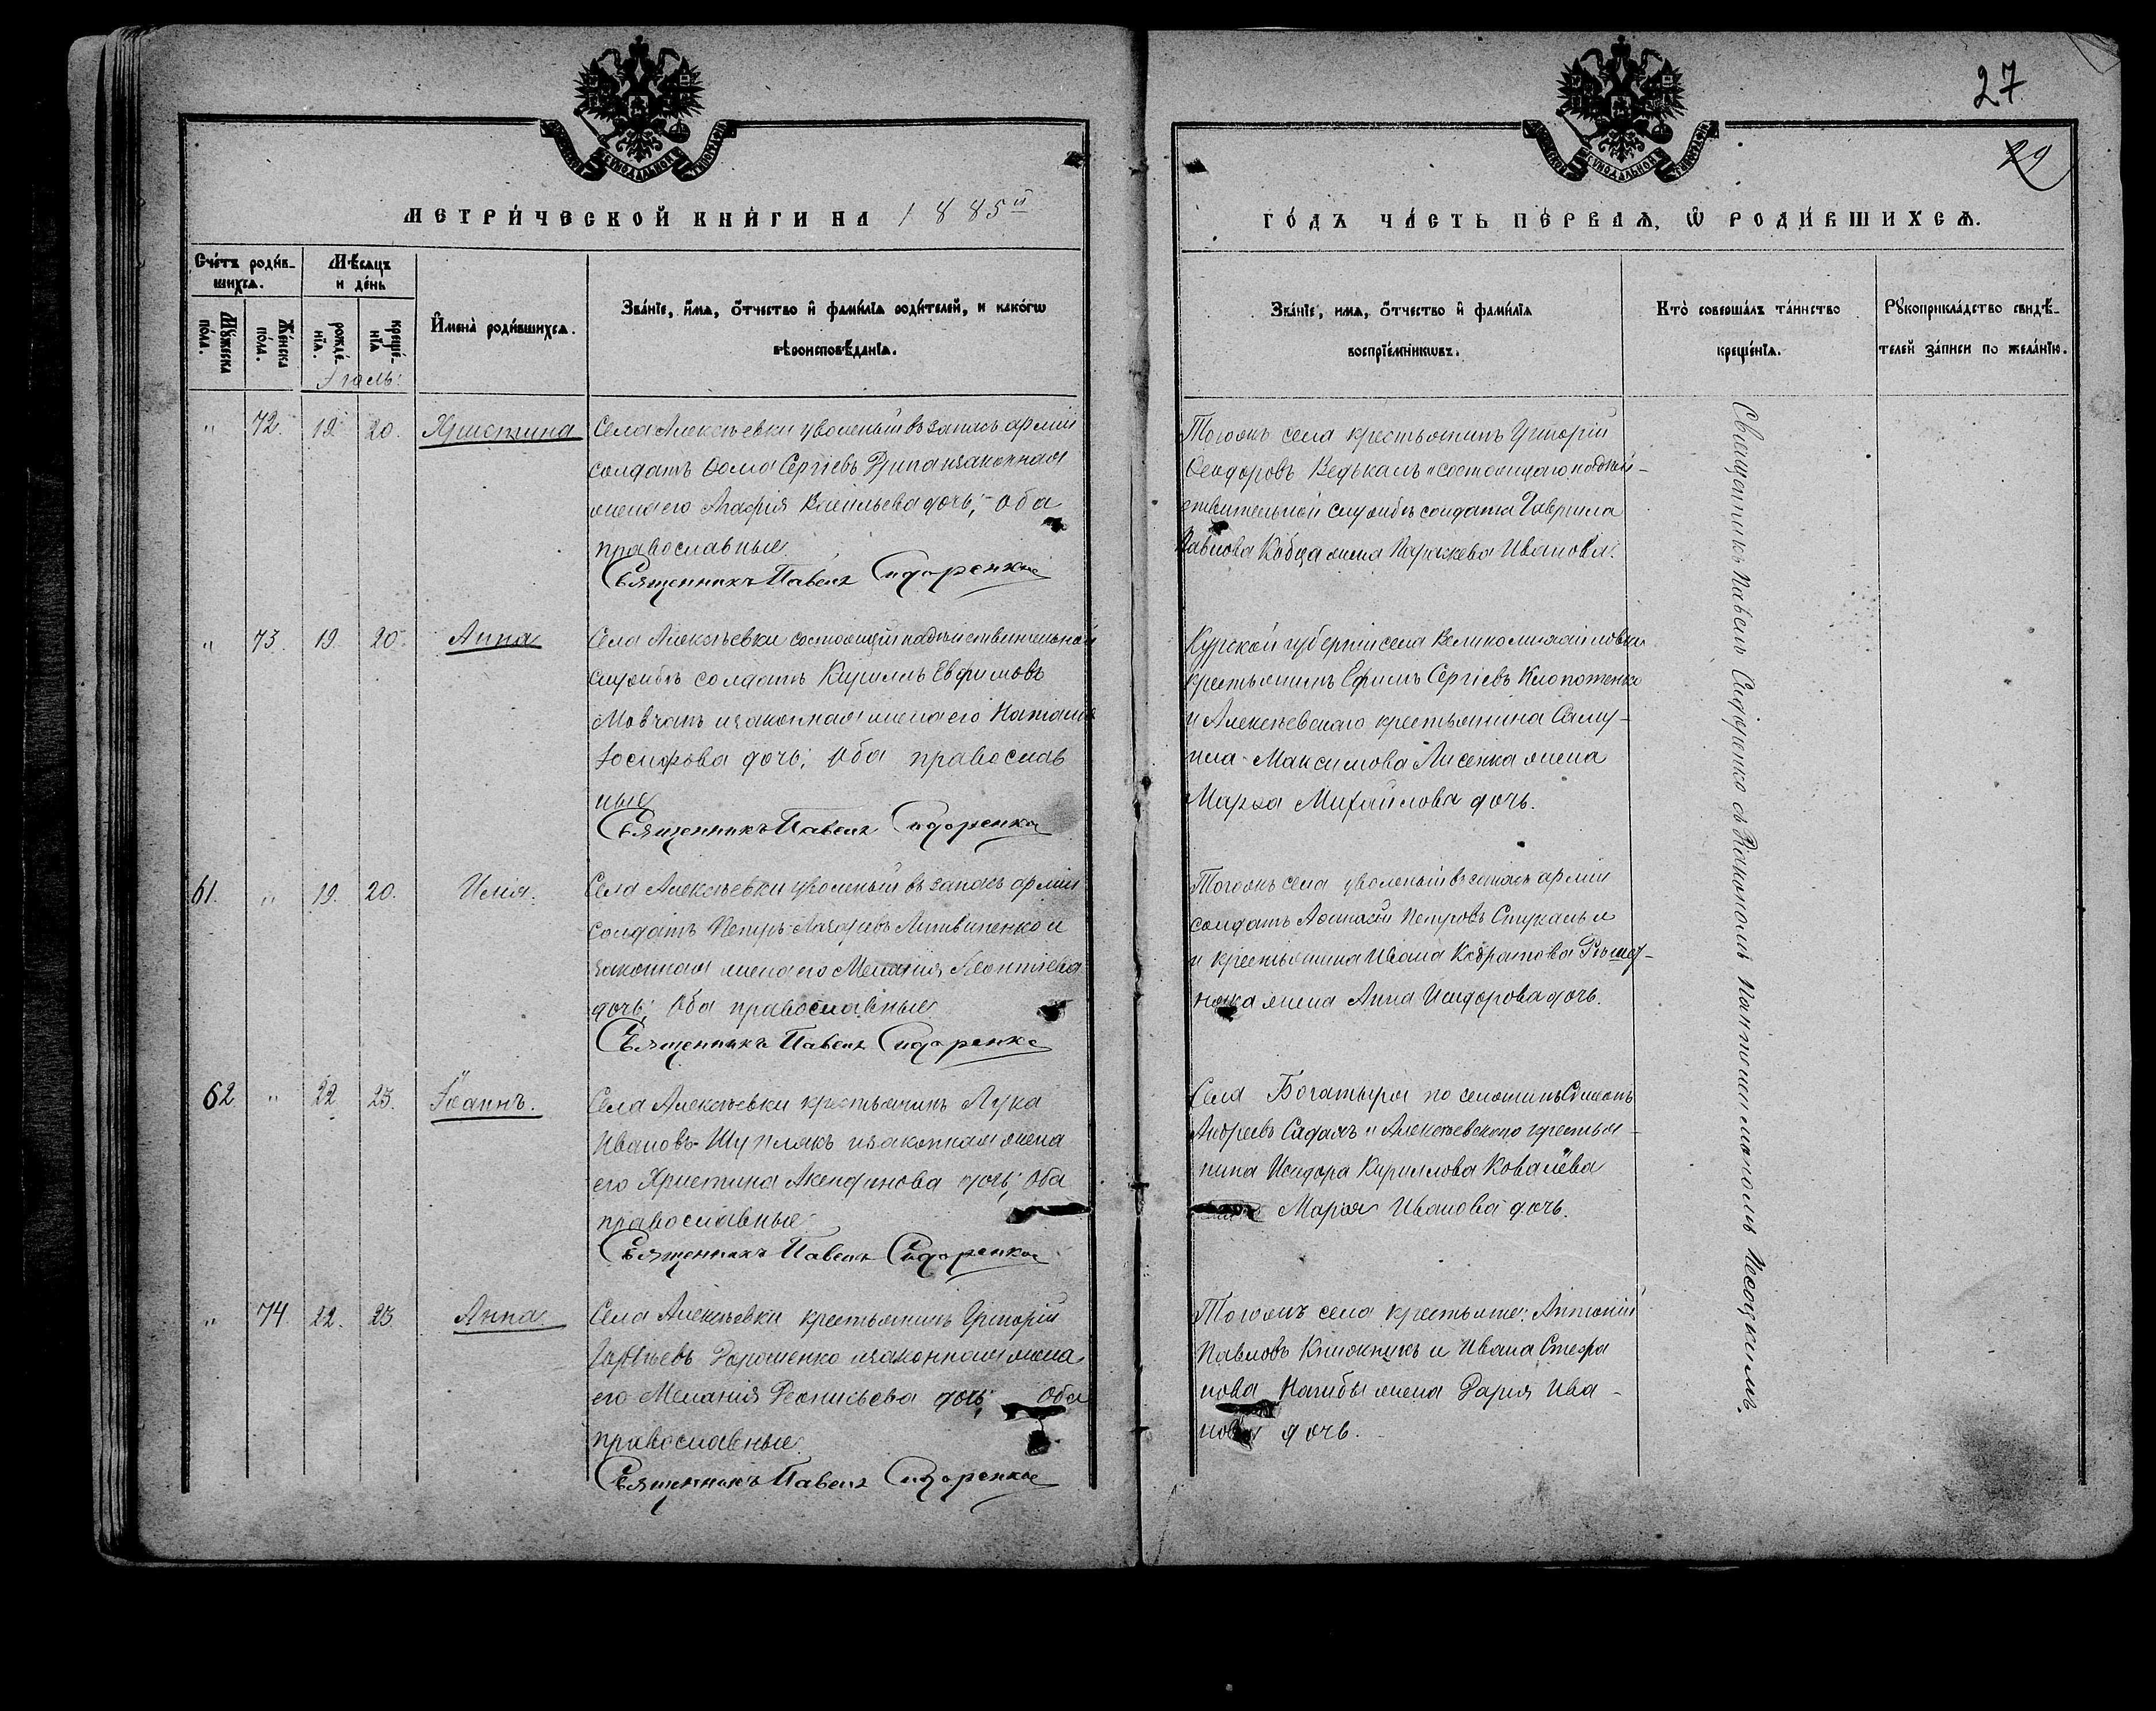 27
29
МЕТРИ́ЧЕСКОЙ КНИ́ГИ НА 1885й
ГО́ДЪ ЧА́СТЬ ПЕ́РВАѦ, Ѡ РОДИ́ВШИХСѦ.
Сче́тъ роди́в-
шихсѧ.
Мꙋ́жеска по́ла.
Же́нска по́ла.
Мѣ́сѧцъ
и де́нь
рожде́-нїѧ.
креще́-нїѧ
Іюль:
И҆мена̀ роди́вшихсѧ.
Зва́нїе, и҆́мѧ, о҆́тчество и҆ фами́лїѧ роди́телей, и како́гѡ
вѣроисповѣ́данїѧ.
Зва́нїе, имѧ, о҆́тчество и҆ фами́лїѧ
воспрїе́мникѡвъ.
Кто̀ соверша́лъ та́инство
креще́нїѧ.
Рꙋкоприкла́дство свидѣ́-
телей за́писи по жела́нїю.
" 72. 19 20. Христина
Села Алексѣевки уволеный въ запасъ арміи
солдатъ Ѳома Сергіевъ и законная
жена его Агафія Васильева дочь; Оба
православные.
Священникъ Павелъ Сидоренко
Тогожъ села крестьянинъ Григорій
Ѳеодоровъ и состоящаго на дѣй-
ствительной службѣ солдата Гавриила
Павлова Кобца жена Параскева Иванова.
" 73. 19. 20. Анна
Села Алексѣевки состоящій на дѣйствительной
службѣ солдатъ Кириллъ Евфимовъ
Мовчанъ и законная жена его Наталія
Іосифова дочь; Оба православ
ные
Священникъ Павелъ Сидоренко
Курской губерніи села Великомихайловки
крестьянинъ Ефимъ Сергіевъ Клопотенко
и Алексѣевскаго крестьянина Саму-
ила Максимова Лисенка жена
Марѳа Михаилова дочь.
61. " 19. 20. Илія.
Села Алексѣевки уволеный въ запасъ арміи
солдатъ Петръ Литвиненко и
законная жена его Меланія Леонтіева
дочь; Оба православные.
Священникъ Павелъ Сидоренко
Тогожъ села уволеный въ запасъ арміи
солдатъ Аѳанасій Петровъ Стукалъ и
и крестьянина Ивана Кодратова
жена Анна Исидорова дочь.
62. " 22 23. Іоаннъ.
Села Алексѣевки крестьянинъ Лука
Ивановъ Шуплякъ и законная жена
его Христина дочь; Оба
православные
Священникъ Павелъ Сидоренко
Села Богатыря поселянинъ Симеонъ
Андреевъ и Алексѣевскаго крестья-
нина Исидора Кириллова Ковалёва
Марія Иванова дочь.
" 74. 22. 23 Анна
Села Алексѣевки крестьянинъ Григорій
Дорошенко и законная жена
его Меланія Діонисьева дочь; Оба
православные.
Священникъ Павелъ Сидоренко
Тогожъ села крестьяне: Антоній
Павловъ и Ивана Стефа
нова Нагибы жена Дарія Ива-
нова дочь.
Священникъ Павелъ Сидоренко съ Діакономъ Пантелеимономъ Песоцкимъ.